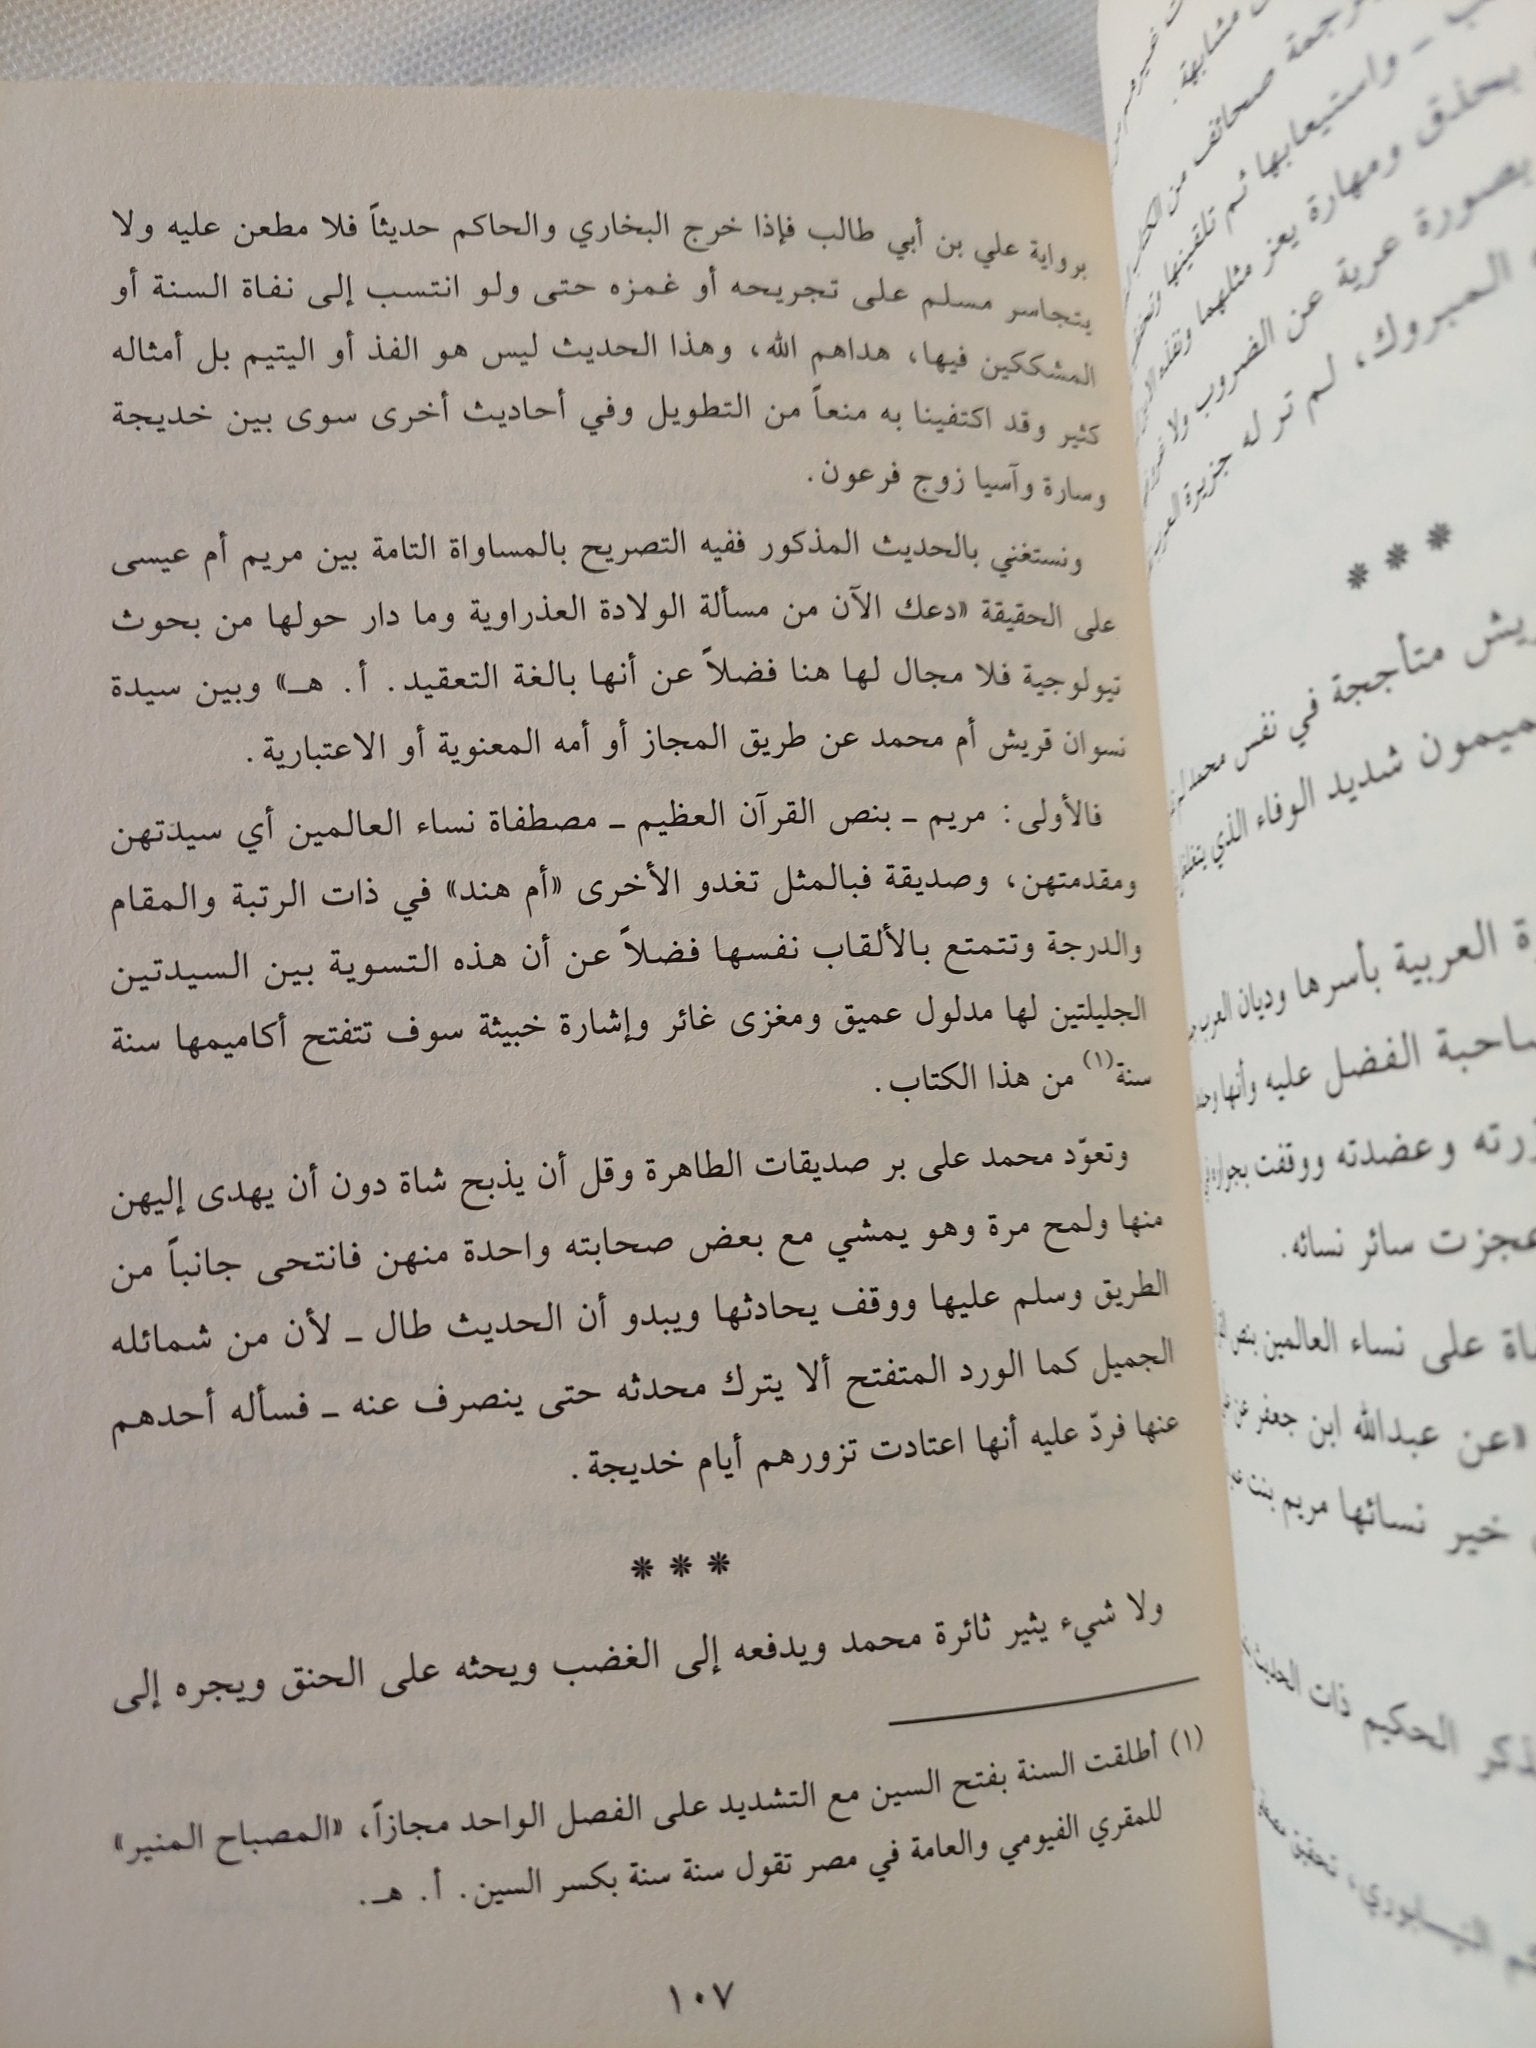 برواية علي بن أبي طالب فإذا خرج البخاري والحاكم حديثاً فلا مطعن عليه ولا
يتجاسر مسلم على تجريحه أو غمزه حتى ولو انتسب إلى نفاة السنة أو
المشككين فيها، هداهم الله، وهذا الحديث ليس هو الفذ أو اليتيم بل أمثاله
كثير وقد اكتفينا به منعاً من التطويل وفي أحاديث أخرى سوى بين خديجة
وسارة وآسيا زوج فرعون.
ونستغني بالحديث المذكور ففيه التصريح بالمساواة التامة بين مريم أم عيسى
على الحقيقة «دعك الآن من مسألة الولادة العذراوية وما دار حولها من بحوث
تيولوجية فلا مجال لها هنا فضلاً عن أنها بالغة التعقيد. أ. هـ» وبين سيدة
نسوان قريش أم محمد عن طريق المجاز أو أمه المعنوية أو الاعتبارية.
فالأولى: مريم ـ بنص القرآن العظيم ـ مصطفاة نساء العالمين أي سيدَتهن
ومقدمتهن، وصديقة فبالمثل تغدو الأخرى «أم هند» في ذات الرتبة والمقام
والدرجة وتتمتع بالألقاب نفسها فضلاً عن أن هذه التسوية بين السيدتين
الجليلتين لها مدلول عميق ومغزى غائر وإشارة خبيثة سوف تتفتح أكاميمها سنة
سنة(١) من هذا الكتاب.
وتعوّد محمد على بر صديقات الطاهرة وقل أن يذبح شاة دون أن يهدى إليهن
منها ولمح مرة وهو يمشي مع بعض صحابته واحدة منهن فانتحى جانباً من
الطريق وسلم عليها ووقف يحادثها ويبدو أن الحديث طال ـ لأن من شمائله
الجميل كما الورد المتفتح ألا يترك محدثه حتى ينصرف عنه ـ فسأله أحدهم
عنها فردّ عليه أنها اعتادت تزورهم أيام خديجة.
* * *
ولا شيء يثير ثائرة محمد ويدفعه إلى الغضب ويحثه على الحنق ويجره إلى
(١) أطلقت السنة بفتح السين مع التشديد على الفصل الواحد مجازاً، «المصباح المنير»
للمقري الفيومي والعامة في مصر تقول سنة سنة بكسر السين. أ. هـ.
١٠٧
مشابهة.
ترجمة صحائف من
ـ واستيعابها ثم تلقينها
بحذق ومهارة يعز مثلهما
بصورة عرية عن الضروب ولا
المبروك، لم تر له جزيرة
* * *
متأججة في نفس محمد
ميمون شديد الوفاء الذي
العربية بأسرها وديان العرب
الفضل عليه وأنها
وعضدته ووقفت بجواره
عجزت سائر نسائه.
على نساء العالمين بنص
«عن عبدالله ابن جعفر عن
خير نسائها مريم بنت
الحكيم ذات